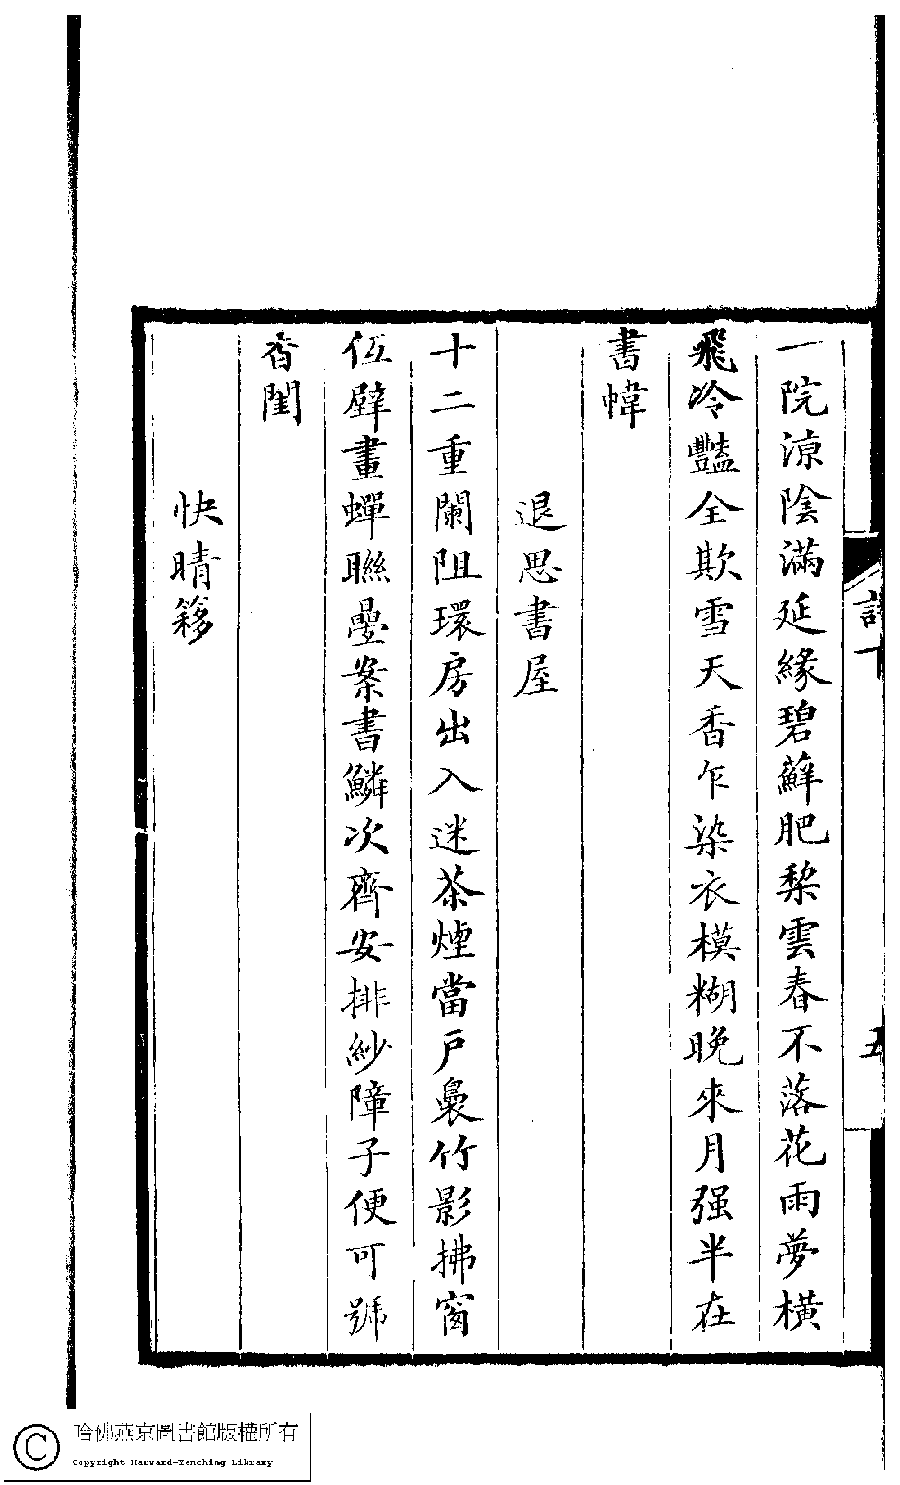 詩十
五
一院涼陰滿延緣碧蘚肥梨雲春不落花雨夢橫
飛冷豔全欺雪天香乍染衣模糊晚來月强半在
書幃
退思書屋
十二重闌阻環房出入迷茶煙當戶裊竹影拂窗
低壁畫蟬聯疊案書鱗次齊安排紗障子便可號
香閨
快晴簃
哈佛燕京圖書館版權所有
Copyright Harvard-Yenching Library